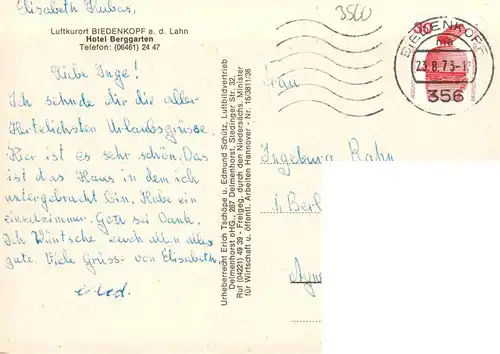 Elisabeth Hubas,
Luftkurort BIEDENKOPF a. d. Lahn
Hotel Berggarten
Telefon: (06461) 24 47
Liebe Inge!
Ich sehnde dir die aller
Hertelichsten Urlaubsgrüsse.
Hier ist es sehr schön. Das
ist das Haus in dem ich
untergebracht bin, Habe ein
einzelzimmer. Gott sei Dank.
Ich Wüntsche euch allen alles
gute. Viele Grüss- von Elisabeth
Urheberrecht Erich Tschöpe u. Edmund Schütz, Luftbildvertrieb
Delmenhorst oHG., 287 Delmenhorst, Stedinger Str. 32,
Ruf (04221) 49 39 - Freigeg. durch den Niedersächs. Minister
für Wirtschaft u. öffentl. Arbeiten Hannover - Nr. 16/3811/36
3560
BIEDENKOPF
23.8.73-1
356
30
Frau
Ingeburg Rahn
1 Berl